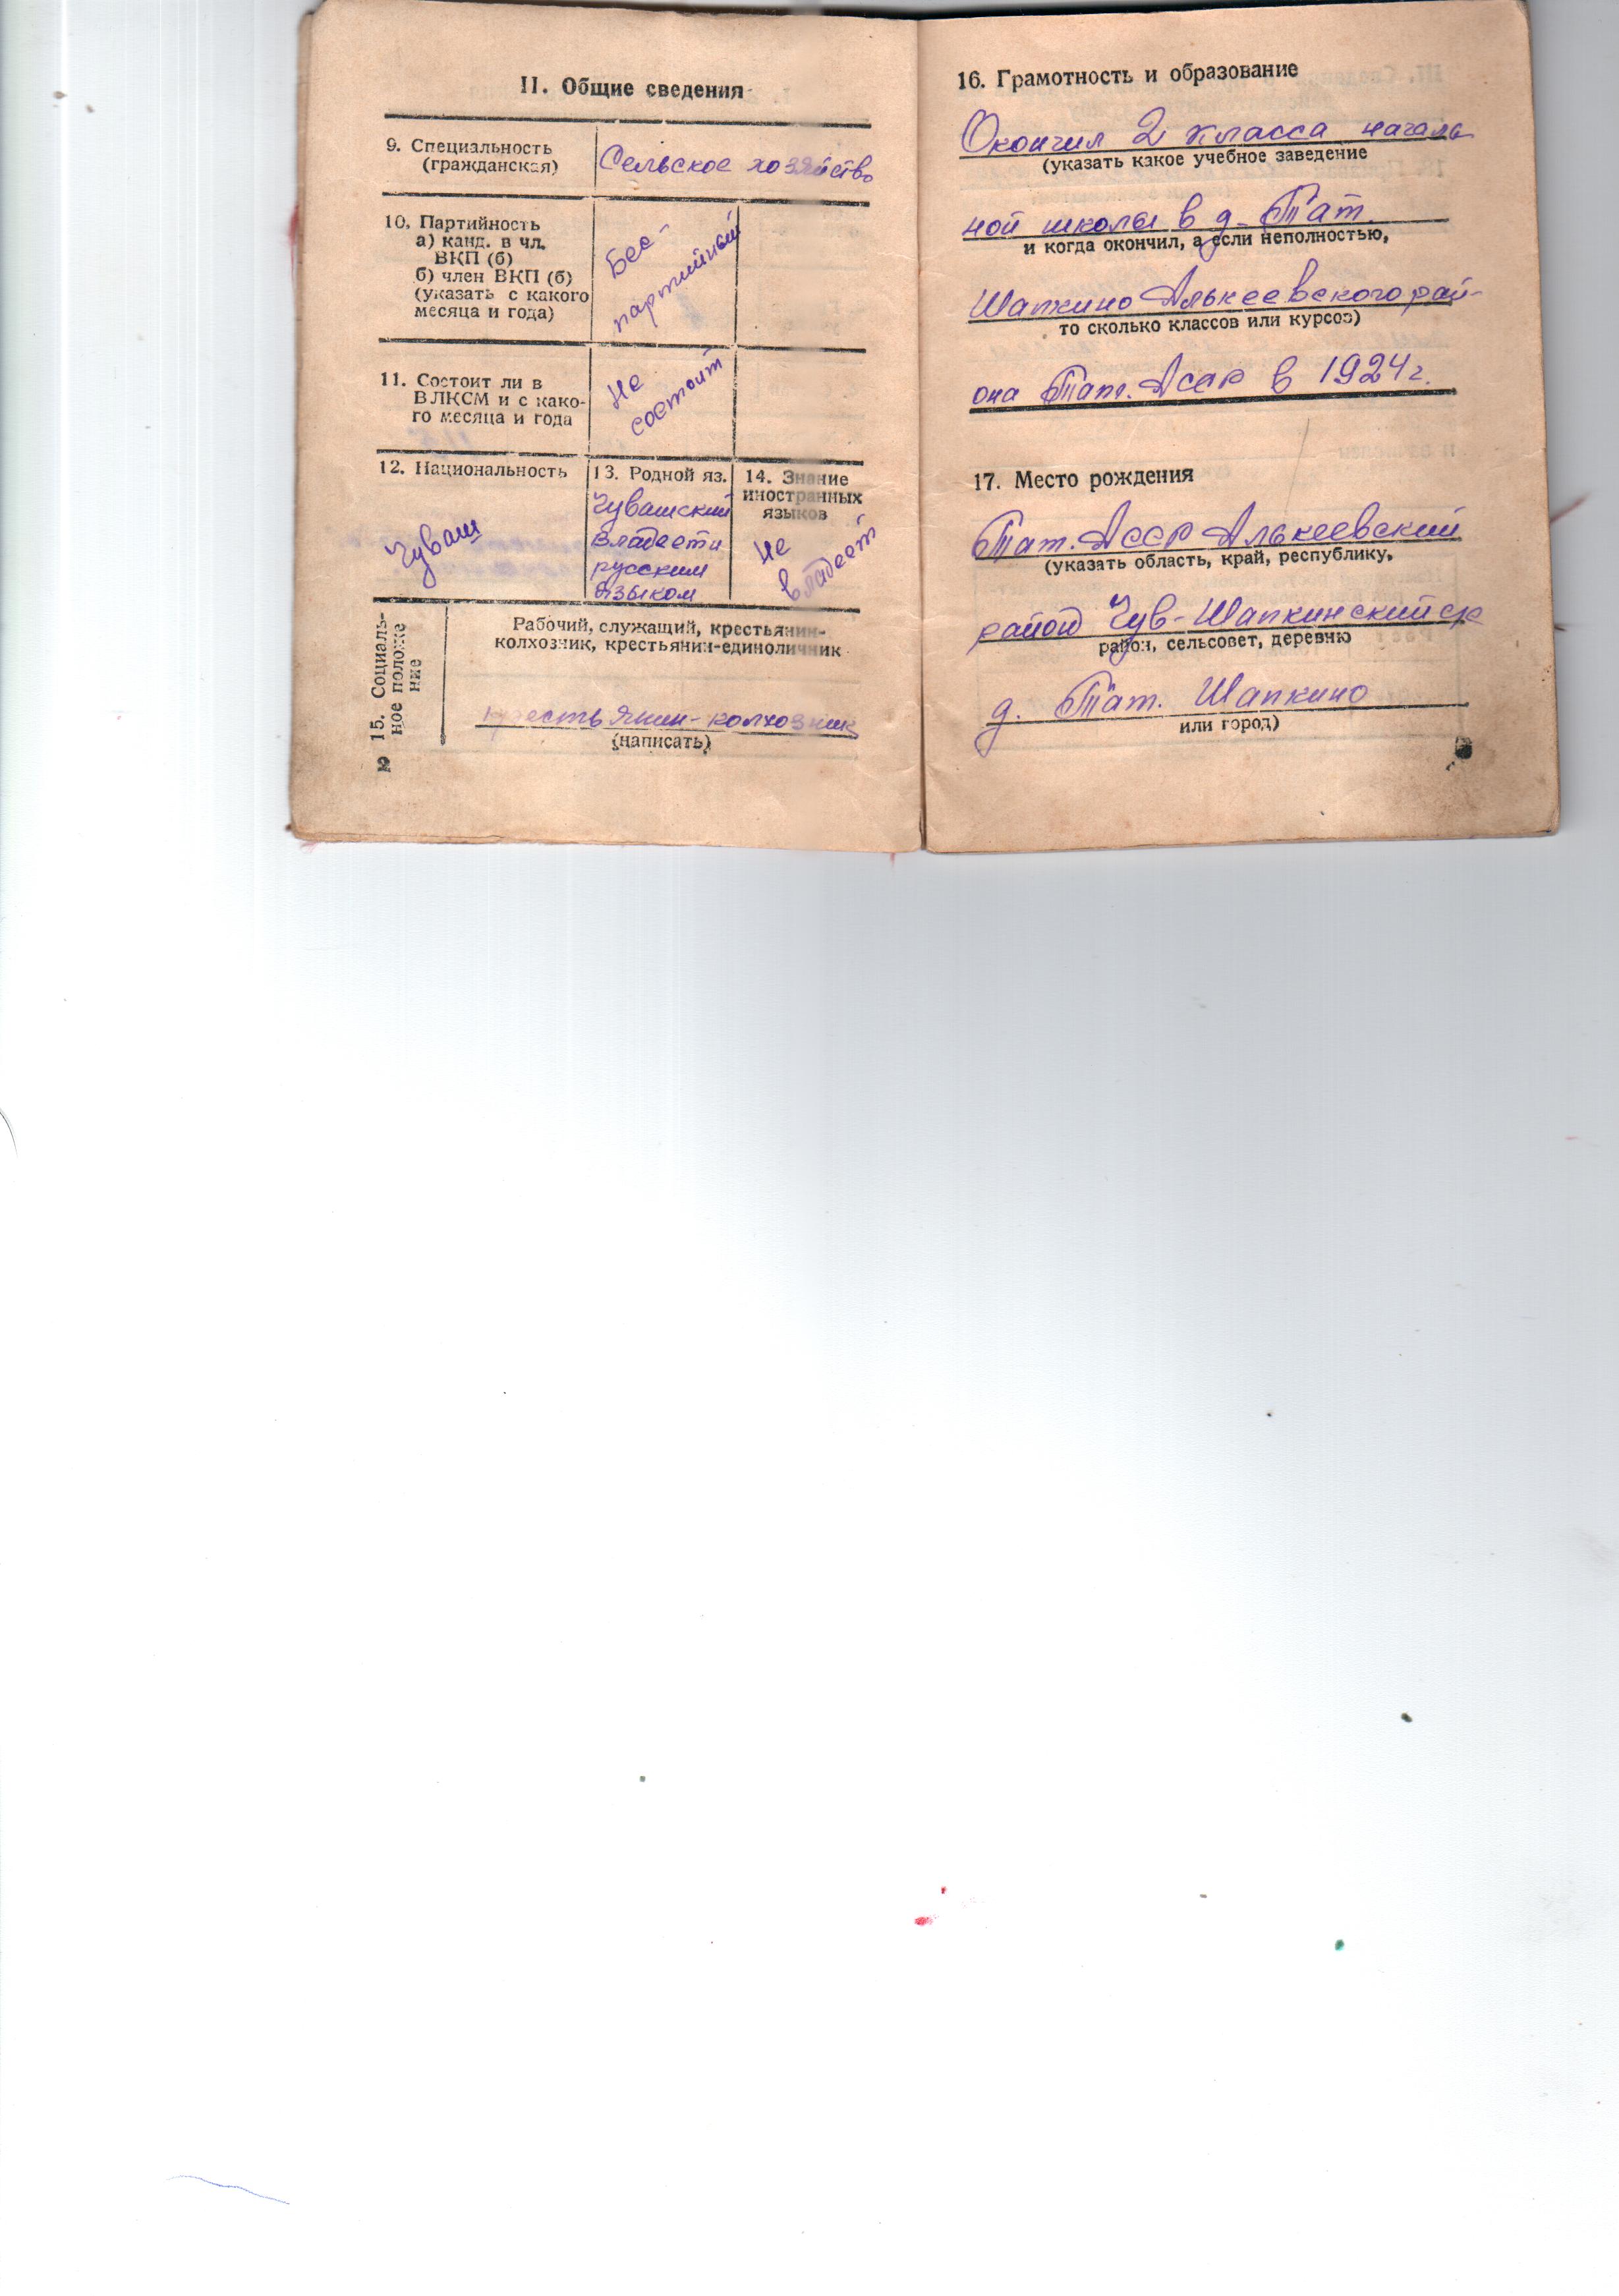 II. Общие сведения
9. Специальность
(гражданская)
Сельское хозяйство
10. Партийность
а) канд. в чл.
ВКП (б)
б) член ВКП (б)
(указать с какого
месяца и года)
Бес-
партийный
11. Состоит ли в
ВЛКСМ и с како-
го месяца и года
Не
состоит
12. Национальность
Чуваш
13. Родной яз.
Чувашский
владеет
русским
языком
14. Знание
иностранных
языков
Не
владеет
15. Социаль-
ное положе
ние
Рабочий, служащий, крестьянин-
колхозник, крестьянин-единоличник
крестьянин-колхозник
(написать)
2
16. Грамотность и образование
Окончил 2 класса началь
(указать какое учебное заведение
ной школы в д. Тат.
и когда окончил, а если неполностью,
Шапкино Алькеевского рай-
то сколько классов или курсов)
она Тат. Асср в 1924 г.
17. Место рождения
Тат. АССР Алькеевский
(указать область, край, республику,
район Чув-Шапкинский с/с
район, сельсовет, деревню
д. Тат. Шапкино
или город)